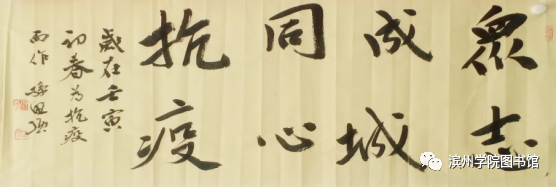 眾志
成城
同心
抗疫
歲在壬寅
初春為抗疫
而作
滨州学院图书馆